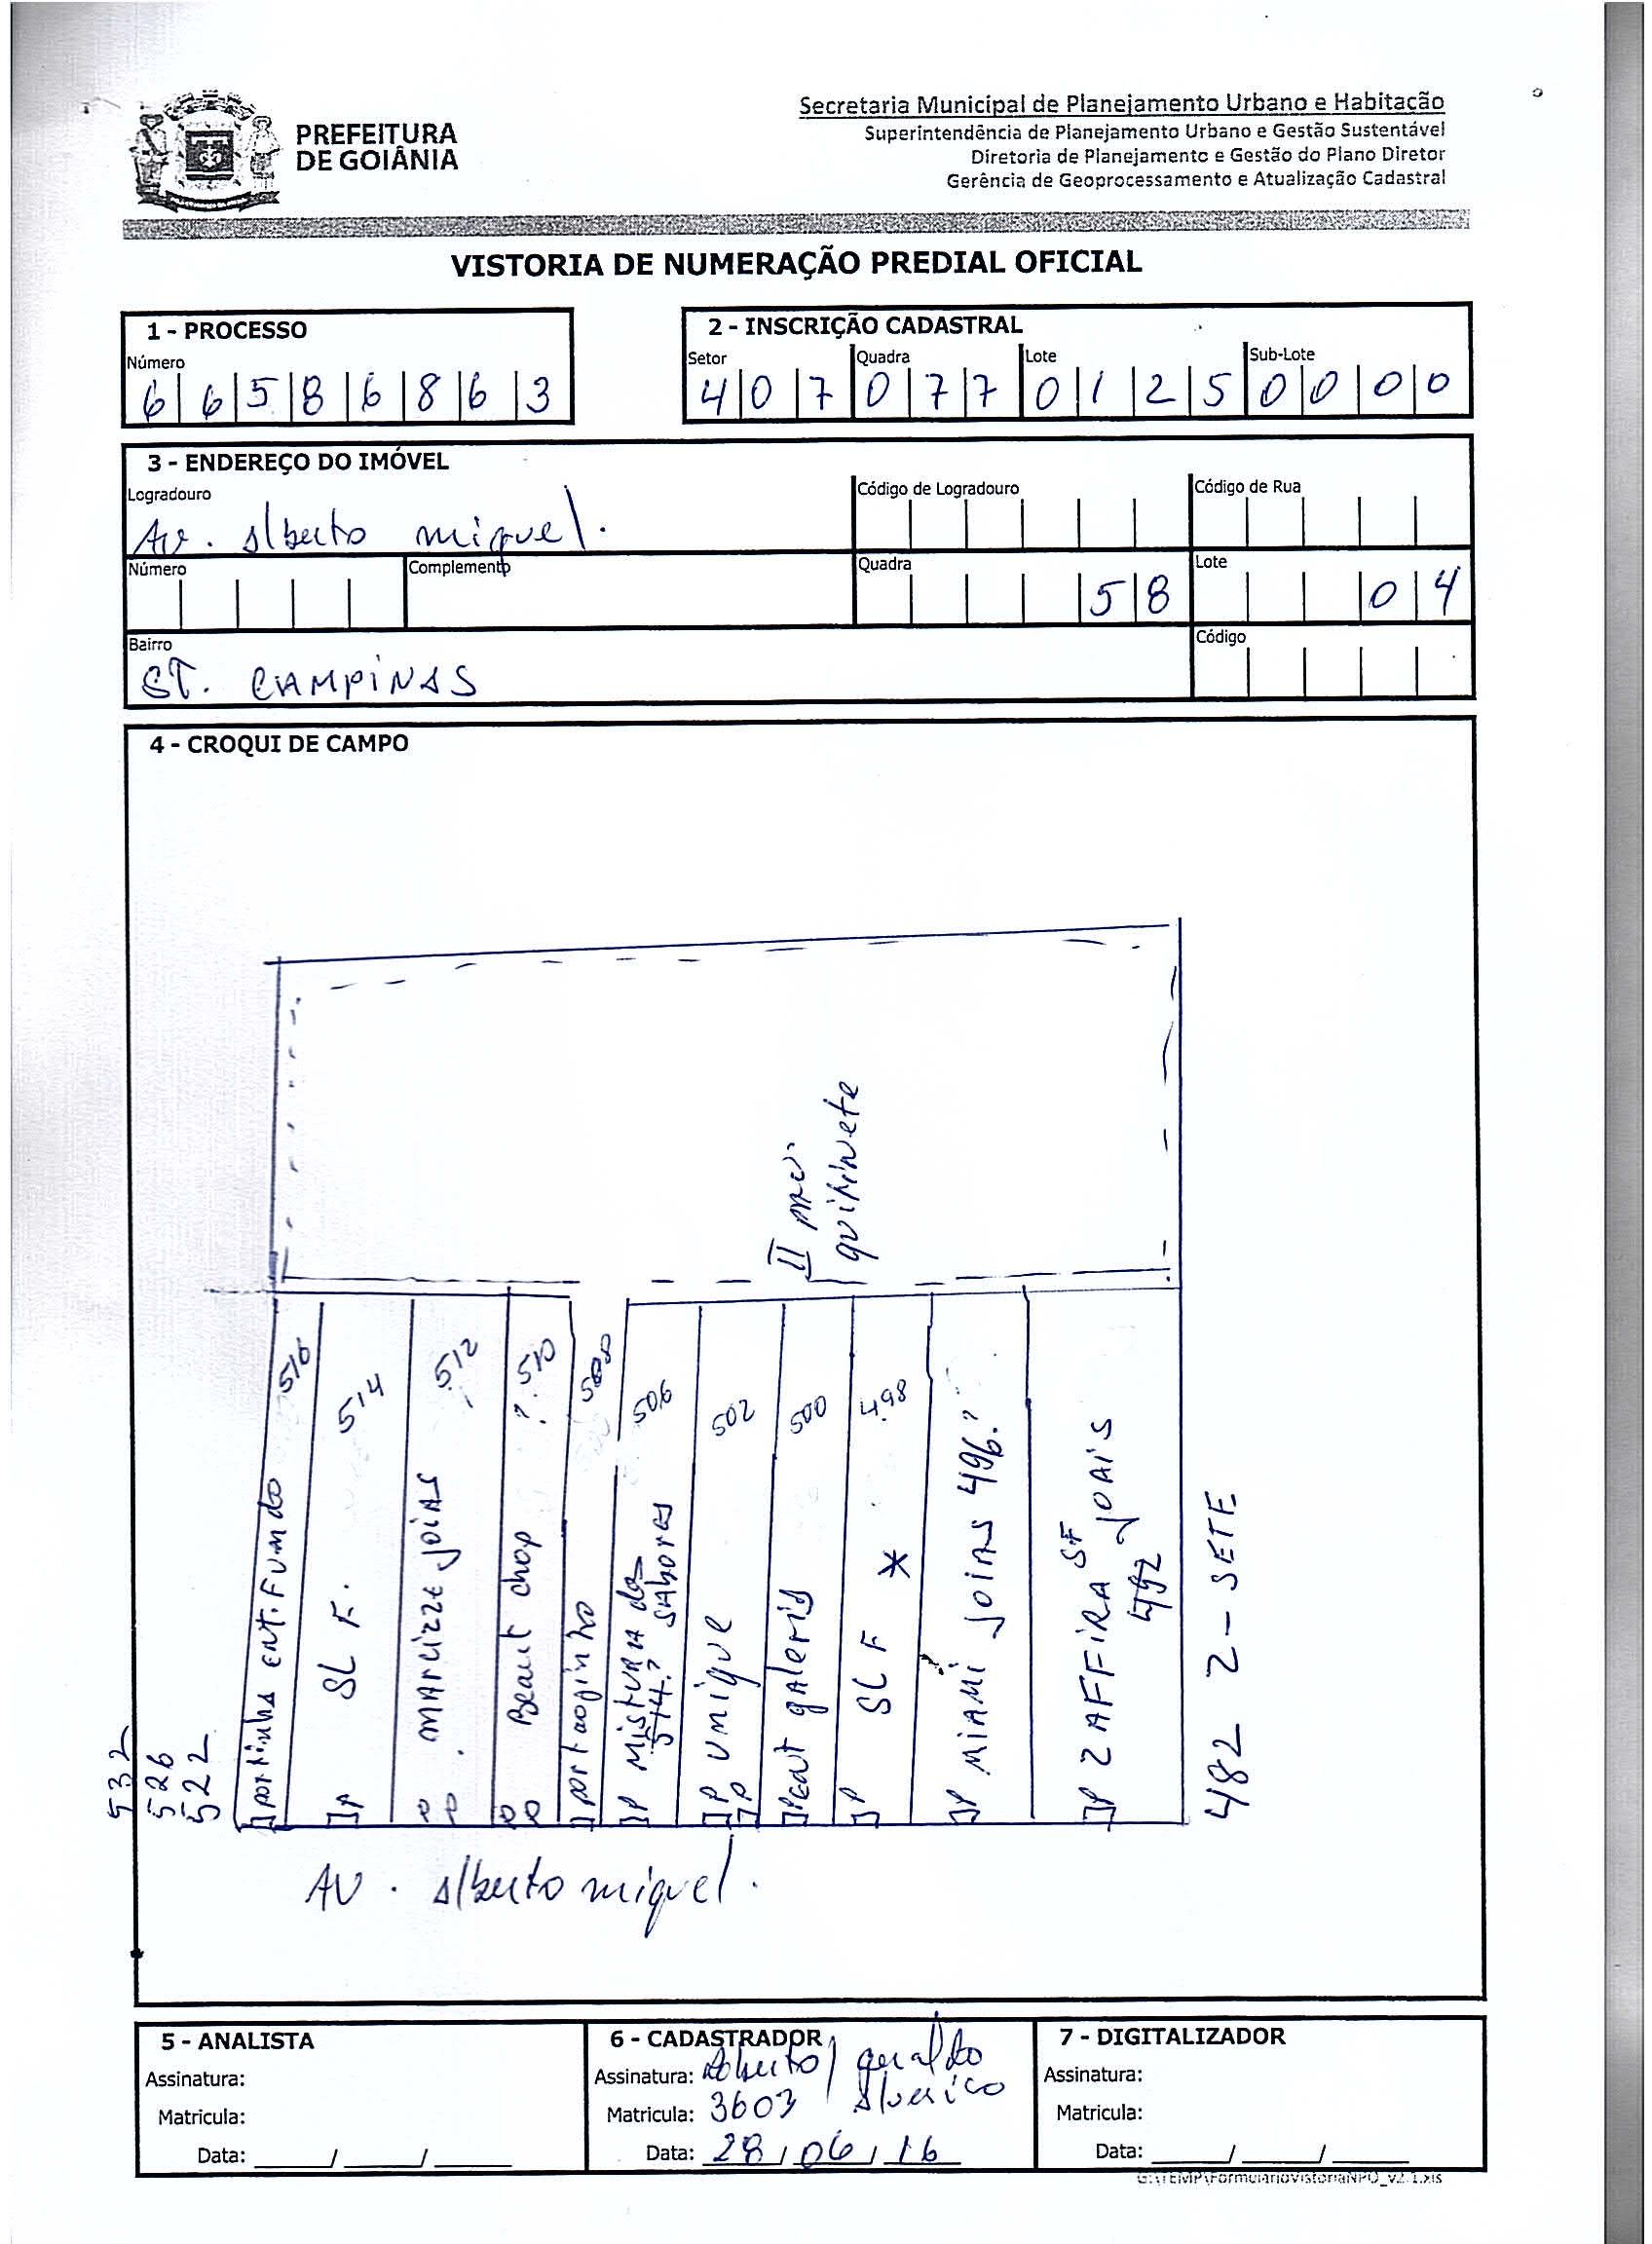 PREFEITURA
DE GOIÂNIA
Secretaria Municipal de Planejamento Urbano e Habitação
Superintendência de Planejamento Urbano e Gestão Sustentável
Diretoria de Planejamento e Gestão do Plano Diretor
Gerência de Geoprocessamento e Atualização Cadastral
VISTORIA DE NUMERAÇÃO PREDIAL OFICIAL
1 - PROCESSO
Número
6 6 5 8 6 8 6 3
2 - INSCRIÇÃO CADASTRAL
Setor Quadra Lote Sub-Lote
4 0 7 0 7 7 0 1 2 5 0 0 0 0
3 - ENDEREÇO DO IMÓVEL
Logradouro Código de Logradouro Código de Rua
Av. Alberto miguel.
Número Complemento Quadra Lote
5 8 0 4
Bairro Código
ST. CAMPINAS
4 - CROQUI DE CAMPO
II pav.
quitinete
532
526
522
portinha ent. Fundo 516
SL F. 514
P
MARCIZZE JOIAS 512
P P
Beaut chop ? 510
P P
portaozinho 508
P MISTURA dos SABORES 506
514.?
P P UNIQUE 502
PEAUT GALERIA 500
P SL F * 498
P MIAMI JOIAS 496.?
P ZAFFIRA JOAIS
SF
492
482 Z - SETE
AV. Alberto miguel.
5 - ANALISTA
Assinatura:
Matricula:
Data: ____/____/____
6 - CADASTRADOR
Assinatura: Roberto / geraldo
Alverico
Matricula: 3603
Data: 28/06/16
7 - DIGITALIZADOR
Assinatura:
Matricula:
Data: ____/____/____
G:\TEMP\FormularioVistoriaNPO_v2.1.xls